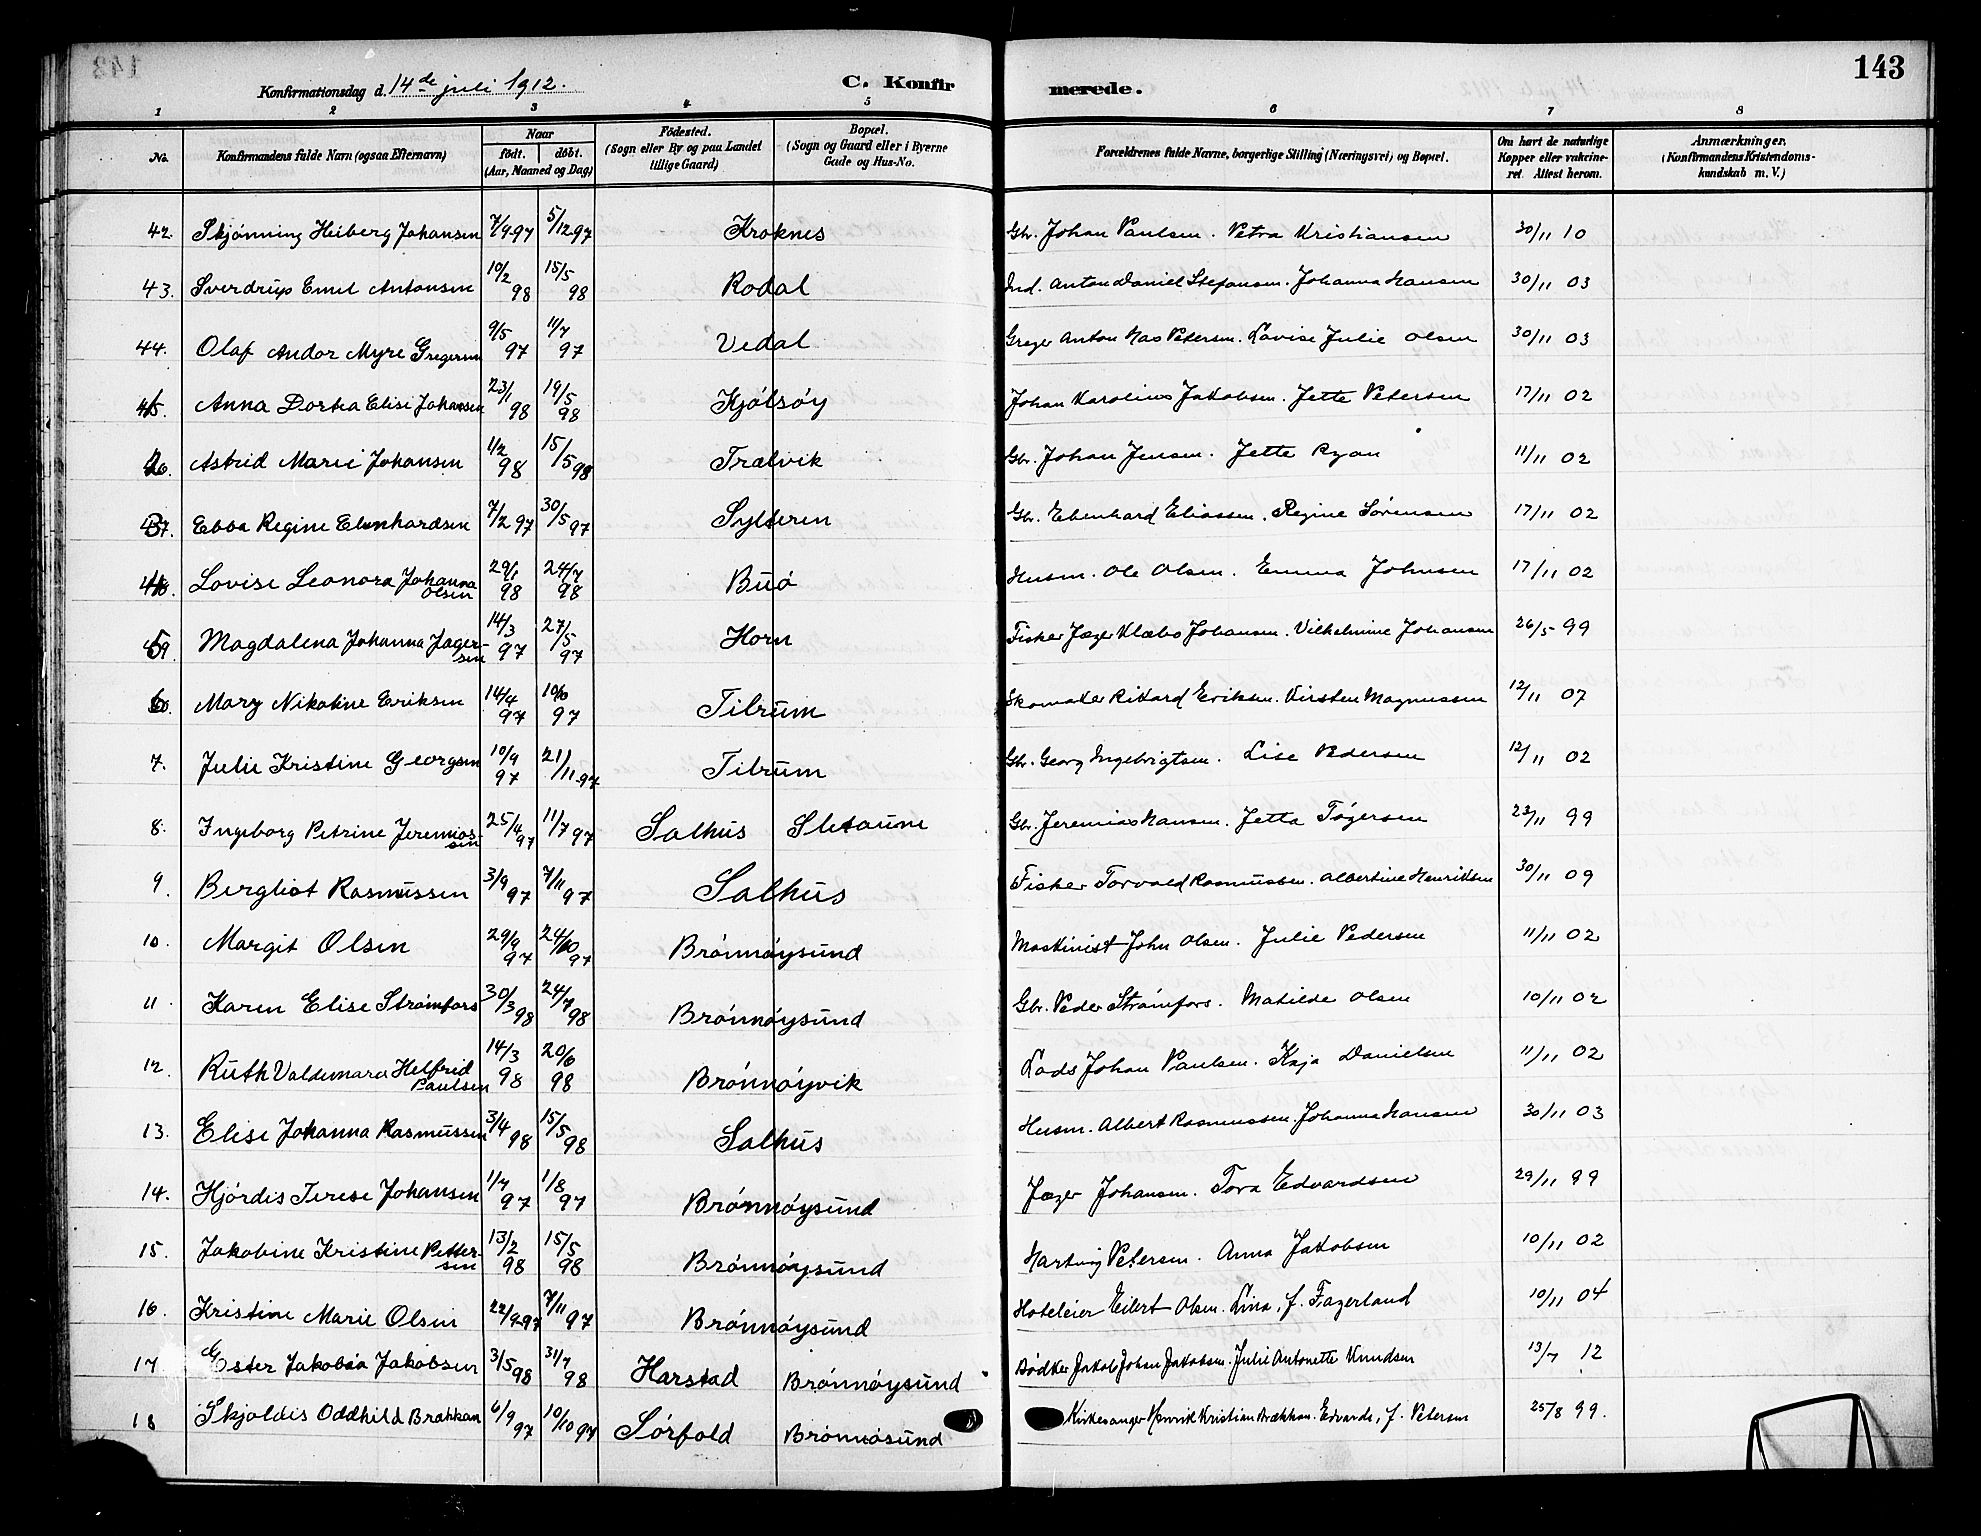 143
Konfirmationsdag d. 14de juli 1912. C. Konfirmerede.
1 2 3 4 5 6 7 8
No. Konfirmandens fulde Navn (ogsaa Efternavn) Naar født. døbt. (Aar, Maaned og Dag) Fødested. (Sogn eller By og paa Landet tillige Gaard) Bopæl. (Sogn og Gaard eller i Byerne Gade og Hus-No. Forældrenes fulde Navne, borgerlige Stilling (Næringsvei) og Bopæl. Om havt de naturlige Kopper eller vakcineret. Attest herom. Anmærkninger. (Konfirmandens Kristendomskundskab m. V.)
42. Skjønning Heiberg Johansen 7/9 97 5/12 97 Kroknes Gbr. Johan Paulsen. Petra Kristiansen 30/11 10
43. Sverdrup Emil Antonsen 10/2 98 15/5 98 Rodal Ind. Anton Daniel Stefansen. Johanna Hansen 30/11 03
44. Olaf Andor Myre Gregersen 9/5 97 11/7 97 Vedal Greger Anton Has Petersen. Lovise Julie Olsen 30/11 03
Anna Dortea Elise Johansen 23/1 98 19/5 98 Kjølsøy Johan Karolius Jakobsen. Jette Petersen 17/11 02
Astrid Marie Johansen 1/2 98 15/5 98 Trælvik Gbr. Johan Jensen. Jette Ryan 11/11 02
Ebba Regine Ebenhardsen 7/2 97 30/5 97 Sylteren Gbr. Ebenhard Eliassen. Regine Sørensen 17/11 02
Lovise Leonora Johanna Olsen 29/1 98 24/7 98 Buø Husm. Ole Olsen. Emma Johnsen 17/11 02
Magdalena Johanna Jagersen 14/3 97 27/5 97 Horn Fisker Jæger Klæbo Johansen. Vilhelmine Johansen 26/5 99
Mary Nikoline Eriksen 14/4 97 10/10 97 Tilrum Skomaker Rikard Eriksen. Kirsten Magnussen 12/11 07
7. Julie Kristine Georgsen 10/9 97 21/11 97 Tilrum Gbr. Georg Ingebrigtsen. Lise Pedersen 12/11 02
8. Ingeborg Petrine Jeremiassen 25/4 97 11/7 97 Salhus Sletaune Gbr. Jeremias Hansen. Jetta Tøgersen 23/11 99
9. Bergliot Rasmussen 3/9 97 7/11 97 Salhus Fisker Torvald Rasmussen. Albertine Henriksen 30/11 09
10. Margit Olsen 29/9 97 24/10 97 Brønnøysund Maskinist John Olsen. Julie Pedersen 11/11 02
11. Karen Elise Strømfors 30/3 98 24/7 98 Brønnøysund Gbr. Peder Strømfors. Matilde Olsen 10/11 02
12. Ruth Valdemara Helfrid Paulsen 14/3 98 20/6 98 Brønnøyvik Lods Johan Paulsen. Kaja Danielsen 11/11 02
13. Elise Johanna Rasmussen 3/4 98 15/5 98 Salhus Husm. Albert Rasmussen. Johanna Hansen 30/11 03
14. Hjørdis Terese Johansen 1/7 97 1/8 97 Brønnøysund Jæger Johansen. Tora Edvardsen 29/11 99
15. Jakobine Kristine Pettersen 13/2 98 15/5 98 Brønnøysund Hartvig Petersen. Anna Jakobsen 10/11 02
16. Kristine Marie Olsen 22/9 97 7/11 97 Brønnøysund Hoteleier Eilert Olsen. Lina, f. Fagerland 10/11 04
17. Ester Jakobia Jakobsen 3/5 98 31/7 98 Harstad Brønnøysund Bødker Jakob Johan Jakobsen. Julie Antonette Knudsen 13/7 12
18 Skjoldis Oddhild Brækkan 6/9 97 10/10 97 Sørfold Brønnøsund Kirkesanger Henrik Kristian Brækkan. Edvarda, f. Petersen 25/8 99.